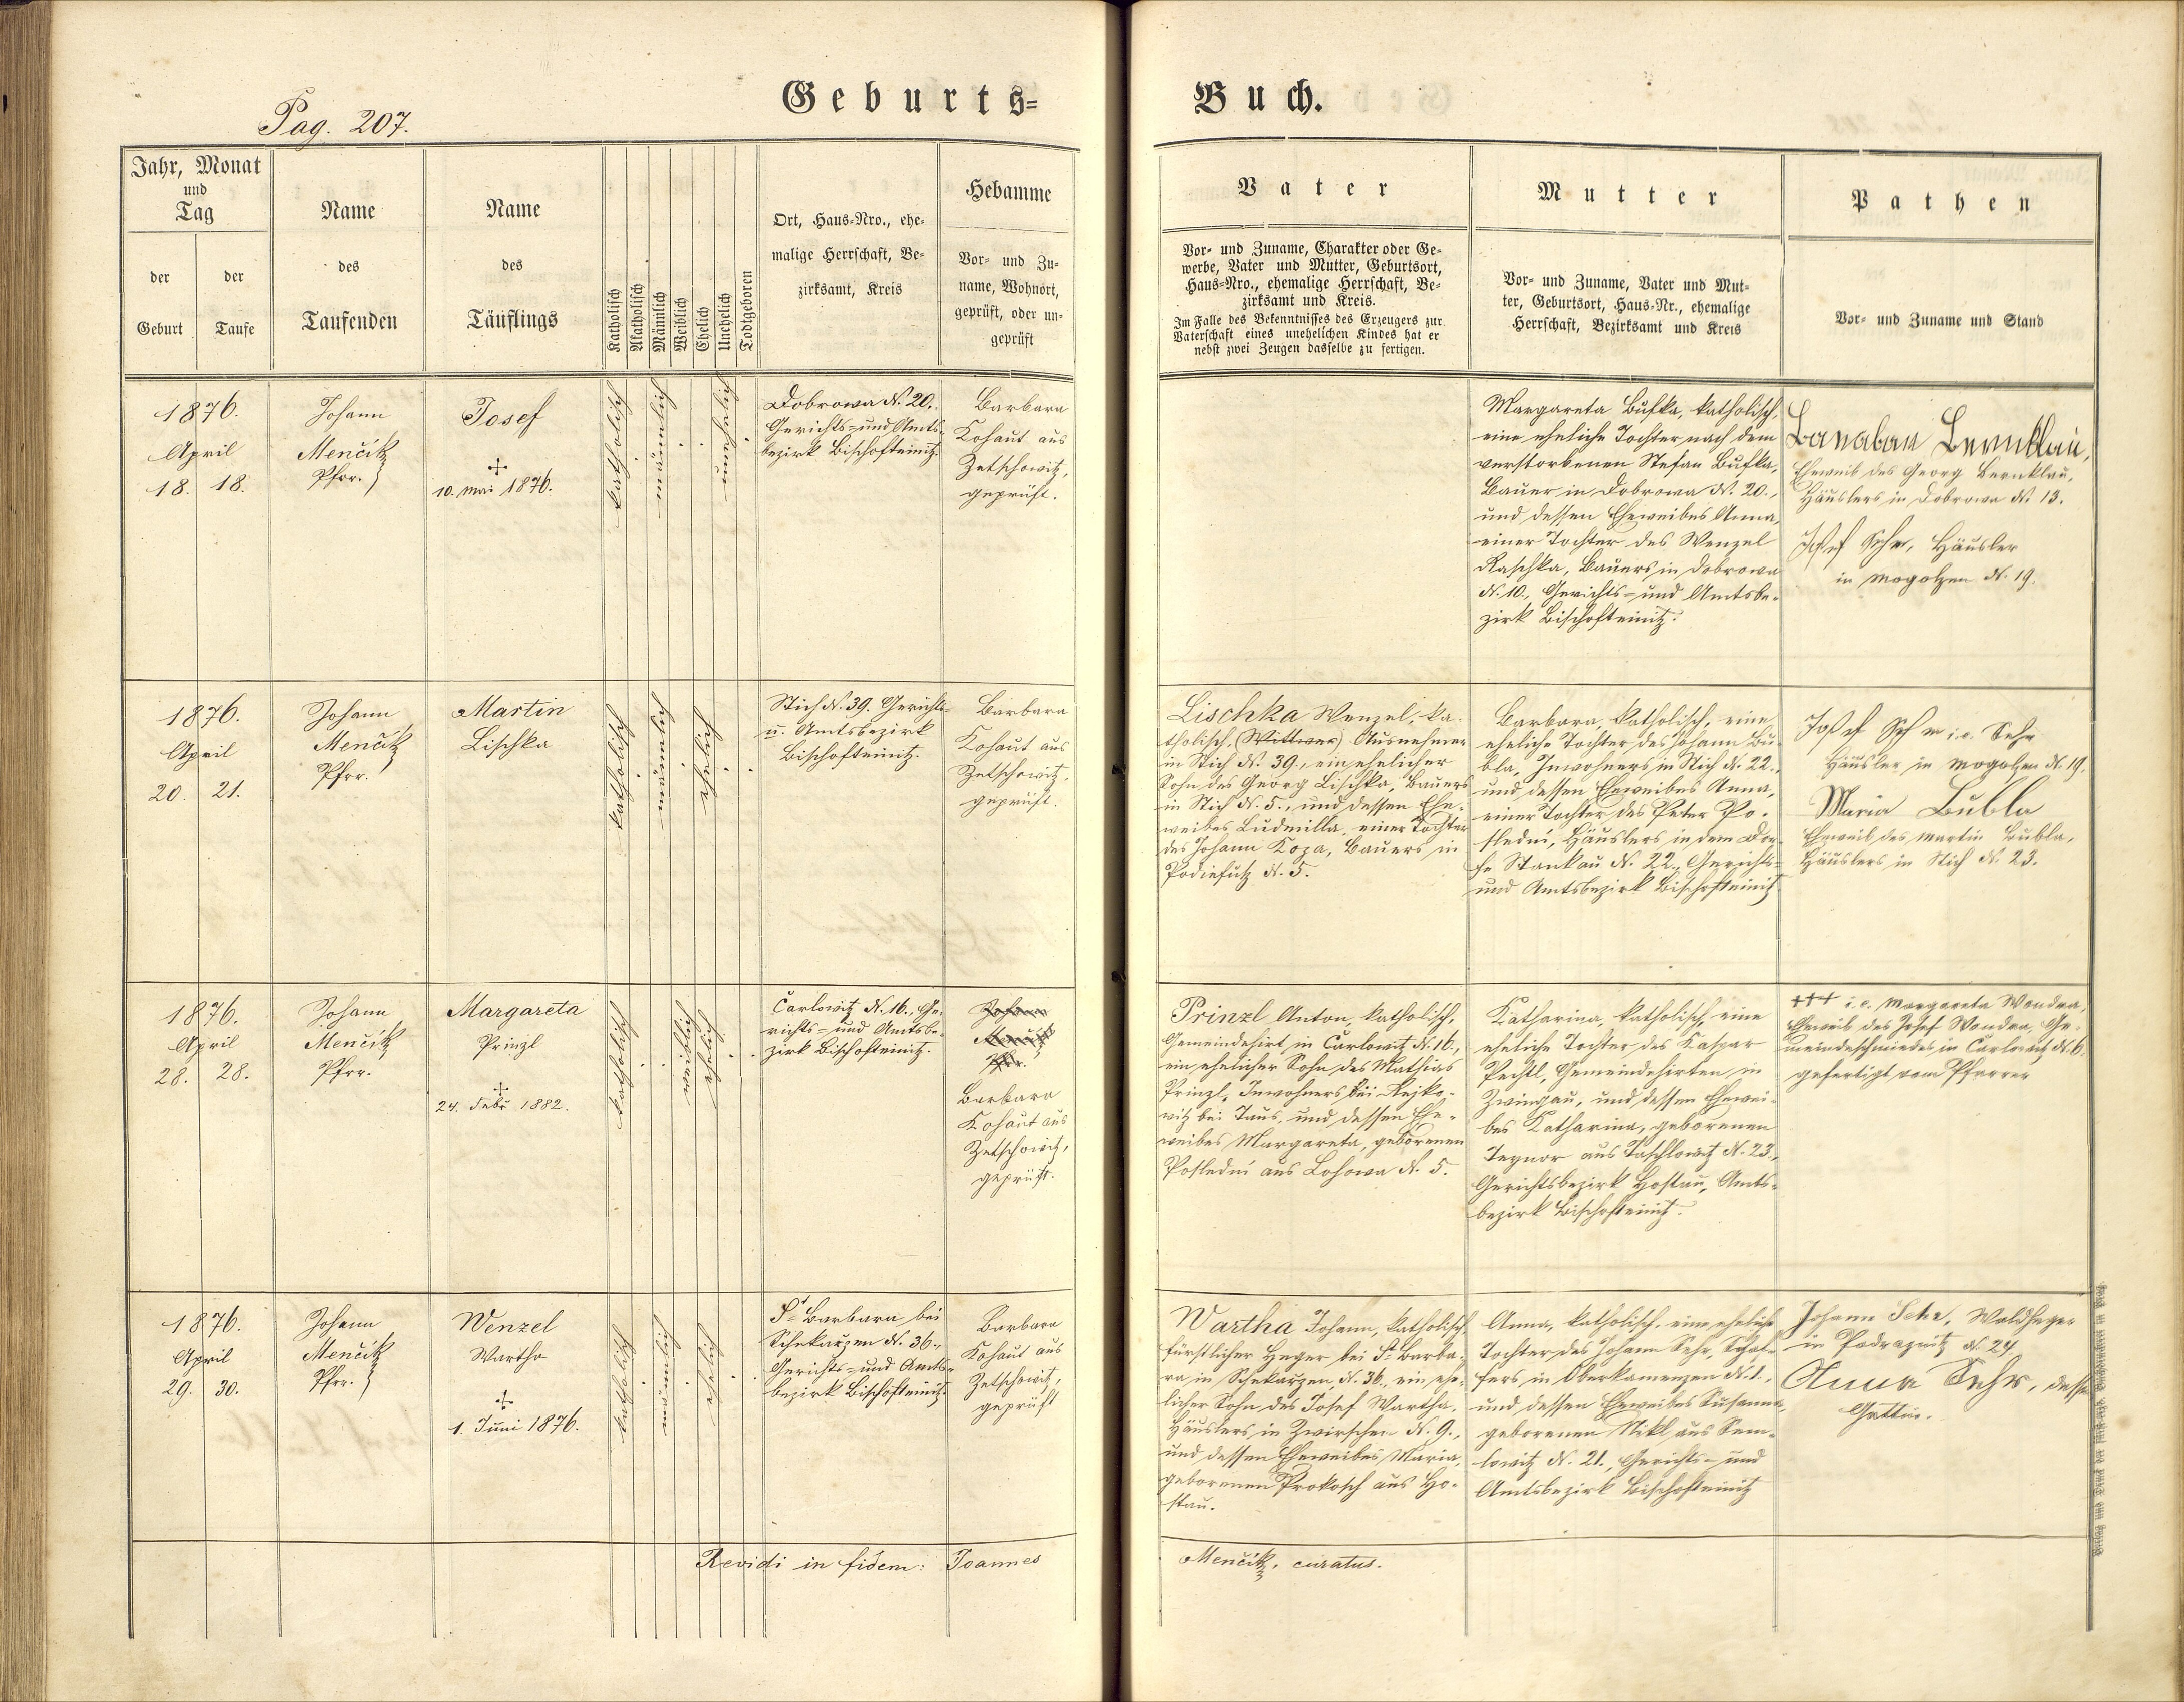 Pag. 207.
Geburts=
Buch.
Jahr, Monat
und
Tag
der
Geburt
der
Taufe
Name
des
Taufenden
Name
des
Täuflings
Katholisch
Akatholisch
Männlich
Weiblich
Ehelich
Unehelich
Todtgeboren
Ort, Haus-Nro., ehe-
malige Herrschaft, Be-
zirksamt, Kreis
Hebamme
Vor- und Zu-
name, Wohnort,
geprüft, oder un-
geprüft
Vater
Vor- und Zuname, Charakter oder Ge-
werbe, Vater und Mutter, Geburtsort,
Haus-Nro., ehemalige Herrschaft, Be-
zirksamt und Kreis.
Im Falle des Bekenntnisses des Erzeugers zur
Vaterschaft eines unehelichen Kindes hat er
nebst zwei Zeugen dasselbe zu fertigen.
Mutter
Vor- und Zuname, Vater und Mut-
ter, Geburtsort, Haus-Nr., ehemalige
Herrschaft, Bezirksamt und Kreis
Pathen
Vor- und Zuname und Stand
1876.
April
18. 18.
Johann
Menčik
Pfrr.
Josef
+
10. Mai 1876.
katholisch
männlich
unehelich
Dobrowa N. 20.
Gerichts- und Amts-
bezirk Bischofteinitz.
Barbara
Kohaut aus
Zetschowitz,
geprüft.
Margareta Bufka, katholisch,
eine eheliche Tochter nach dem
verstorbenen Stefan Bufka,
Bauer in Dobrowa N. 20.,
und dessen Eheweibes Anna,
einer Tochter des Wenzel
Raschka, Bauers in Dobrowa
N. 10., Gerichts- und Amtsbe-
zirk Bischofteinitz.
Bernklau,
Eheweib des Georg Bernklau,
Häuslers in Dobrowa N. 13.
Josef Sehr, Häusler
in Mogolzen N. 19.
1876.
April
20. 21.
Johann
Menčik
Pfrr.
Martin
Lischka
katholisch
männlich
ehelich
Stich N. 39. Gerichts-
u. Amtsbezirk
Bischofteinitz.
Barbara
Kohaut aus
Zetschowitz,
geprüft.
Lischka Wenzel, ka-
tholisch, (Wittwer) Ausnehmer
in Stich N. 39., ein ehelicher
Sohn des Georg Lischka, Bauers
in Stich N. 5., und dessen Ehe-
weibes Ludmilla, einer Tochter
des Johann Koza, Bauers in
Podiefutz N. 5.
Barbara, katholisch, eine
eheliche Tochter des Johann Bu-
bla, Inwohners in Stich N. 22.,
und dessen Eheweibes Anna,
einer Tochter des Peter Po-
sledni, Häuslers in dem Dor-
fe Stankau N. 22., Gerichts-
und Amtsbezirk Bischofteinitz
Josef Sehr i.e. Sehr
Häusler in Mogolzen N. 19.
Maria Bubla
Eheweib des Martin Bubla,
Häuslers in Stich N. 23.
1876.
April
28. 28.
Johann
Menčik
Pfrr.
Margareta
Prinzl
+
24. Febr 1882.
katholisch
weiblich
ehelich
Carlowitz N. 16., Ge-
richts- und Amtsbe-
zirk Bischofteinitz.
Johann
Menčik
Pfrr.
Barbara
Kohaut aus
Zetschowitz,
geprüft.
Prinzl Anton, katholisch,
Gemeindehirt in Carlowitz N. 16.,
ein ehelicher Sohn des Mathias
Prinzl, Inwohners bei Rejko-
witz bei Taus, und dessen Ehe-
weibes Margareta, geborenen
Posledni aus Lohowa N. 5.
Katharina, katholisch, eine
eheliche Tochter des Kaspar
Pechtl, Gemeindehirten in
Zwingau, und dessen Ehewei-
bes Katharina, geborenen
Teynor aus Taschlowitz N. 23.,
Gerichtsbezirk Hostau, Amts-
bezirk Bischofteinitz.
+++ i.e. Margareta Wondra,
Eheweib des Josef Wondra, Ge-
meindeschmiedes in Carlowitz N. 6.
gefertigt vom Pfarrer
1876.
April
29. 30.
Johann
Menčik
Pfrr.
Wenzel
Wartha
+
1. Juni 1876.
katholisch
männlich
ehelich
St Barbara bei
Schekarzen N. 36.,
Gerichts- und Amts-
bezirk Bischofteinitz.
Barbara
Kohaut aus
Zetschowitz,
geprüft
Wartha Johann, katholisch,
fürstlicher Heger bei St Barba-
ra in Schekarzen, N. 36., ein ehe-
licher Sohn des Josef Wartha,
Häuslers in Zwirschen N. 9.,
und dessen Eheweibes Maria,
geborenen Prokosch aus Ho-
stau.
Anna, katholisch, eine eheliche
Tochter des Johann Sehr, Schä-
fers in Oberkamenzen N. 1.,
und dessen Eheweibes Susanna,
geborenen Nikl aus Sem-
lowitz N. 21., Gerichts- und
Amtsbezirk Bischofteinitz
Johann Sehr, Waldheger
in Podraznitz N. 24
Anna Sehr, dessen
Gattin.
Revidi in fidem: Joannes
Menčik, curatus.